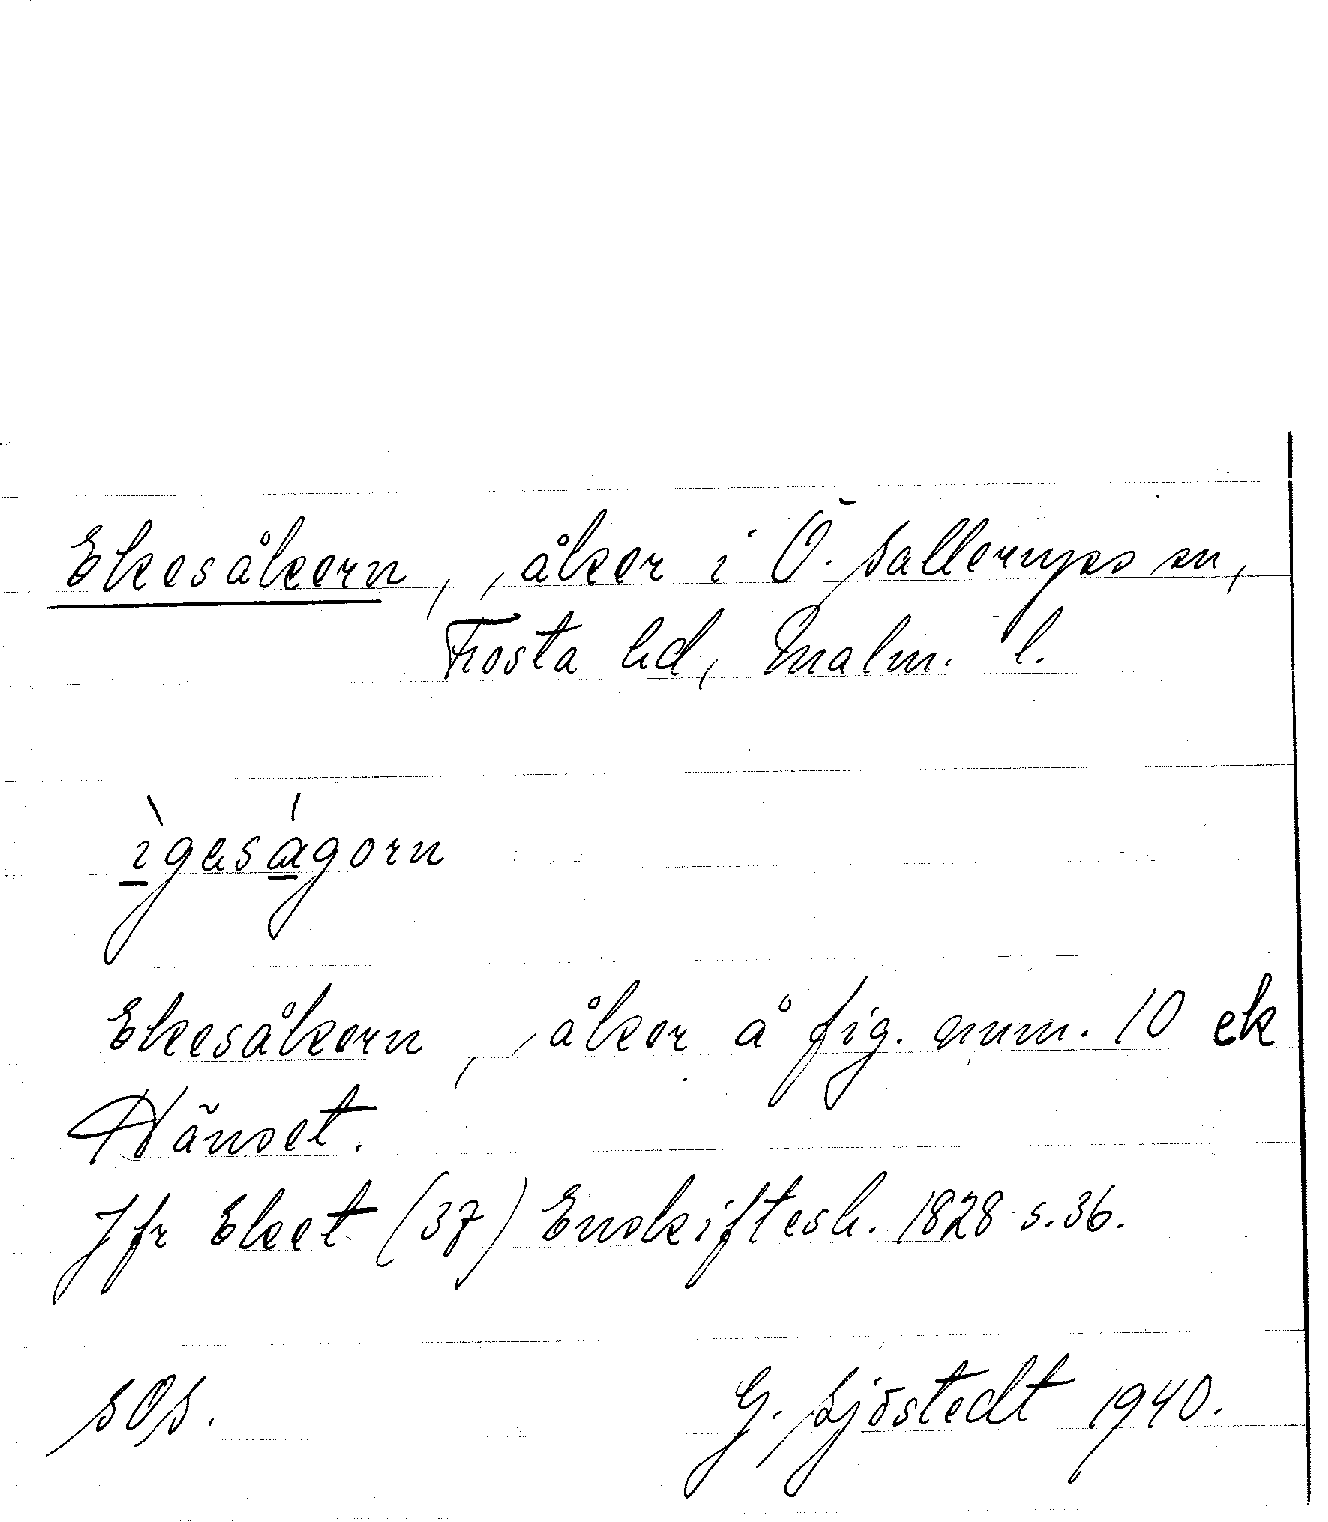 Ekesåkern, , åker i Ö. Sallerups sn,
Frosta hd, Malm. l.
ìgasågorn
Ekesåkern, , åker å fig. num. 10 ek
Hänset.
Jfr Eket (37) Enskiftesh. 1828 s. 36.
SOS.
G. Sjöstedt 1940.